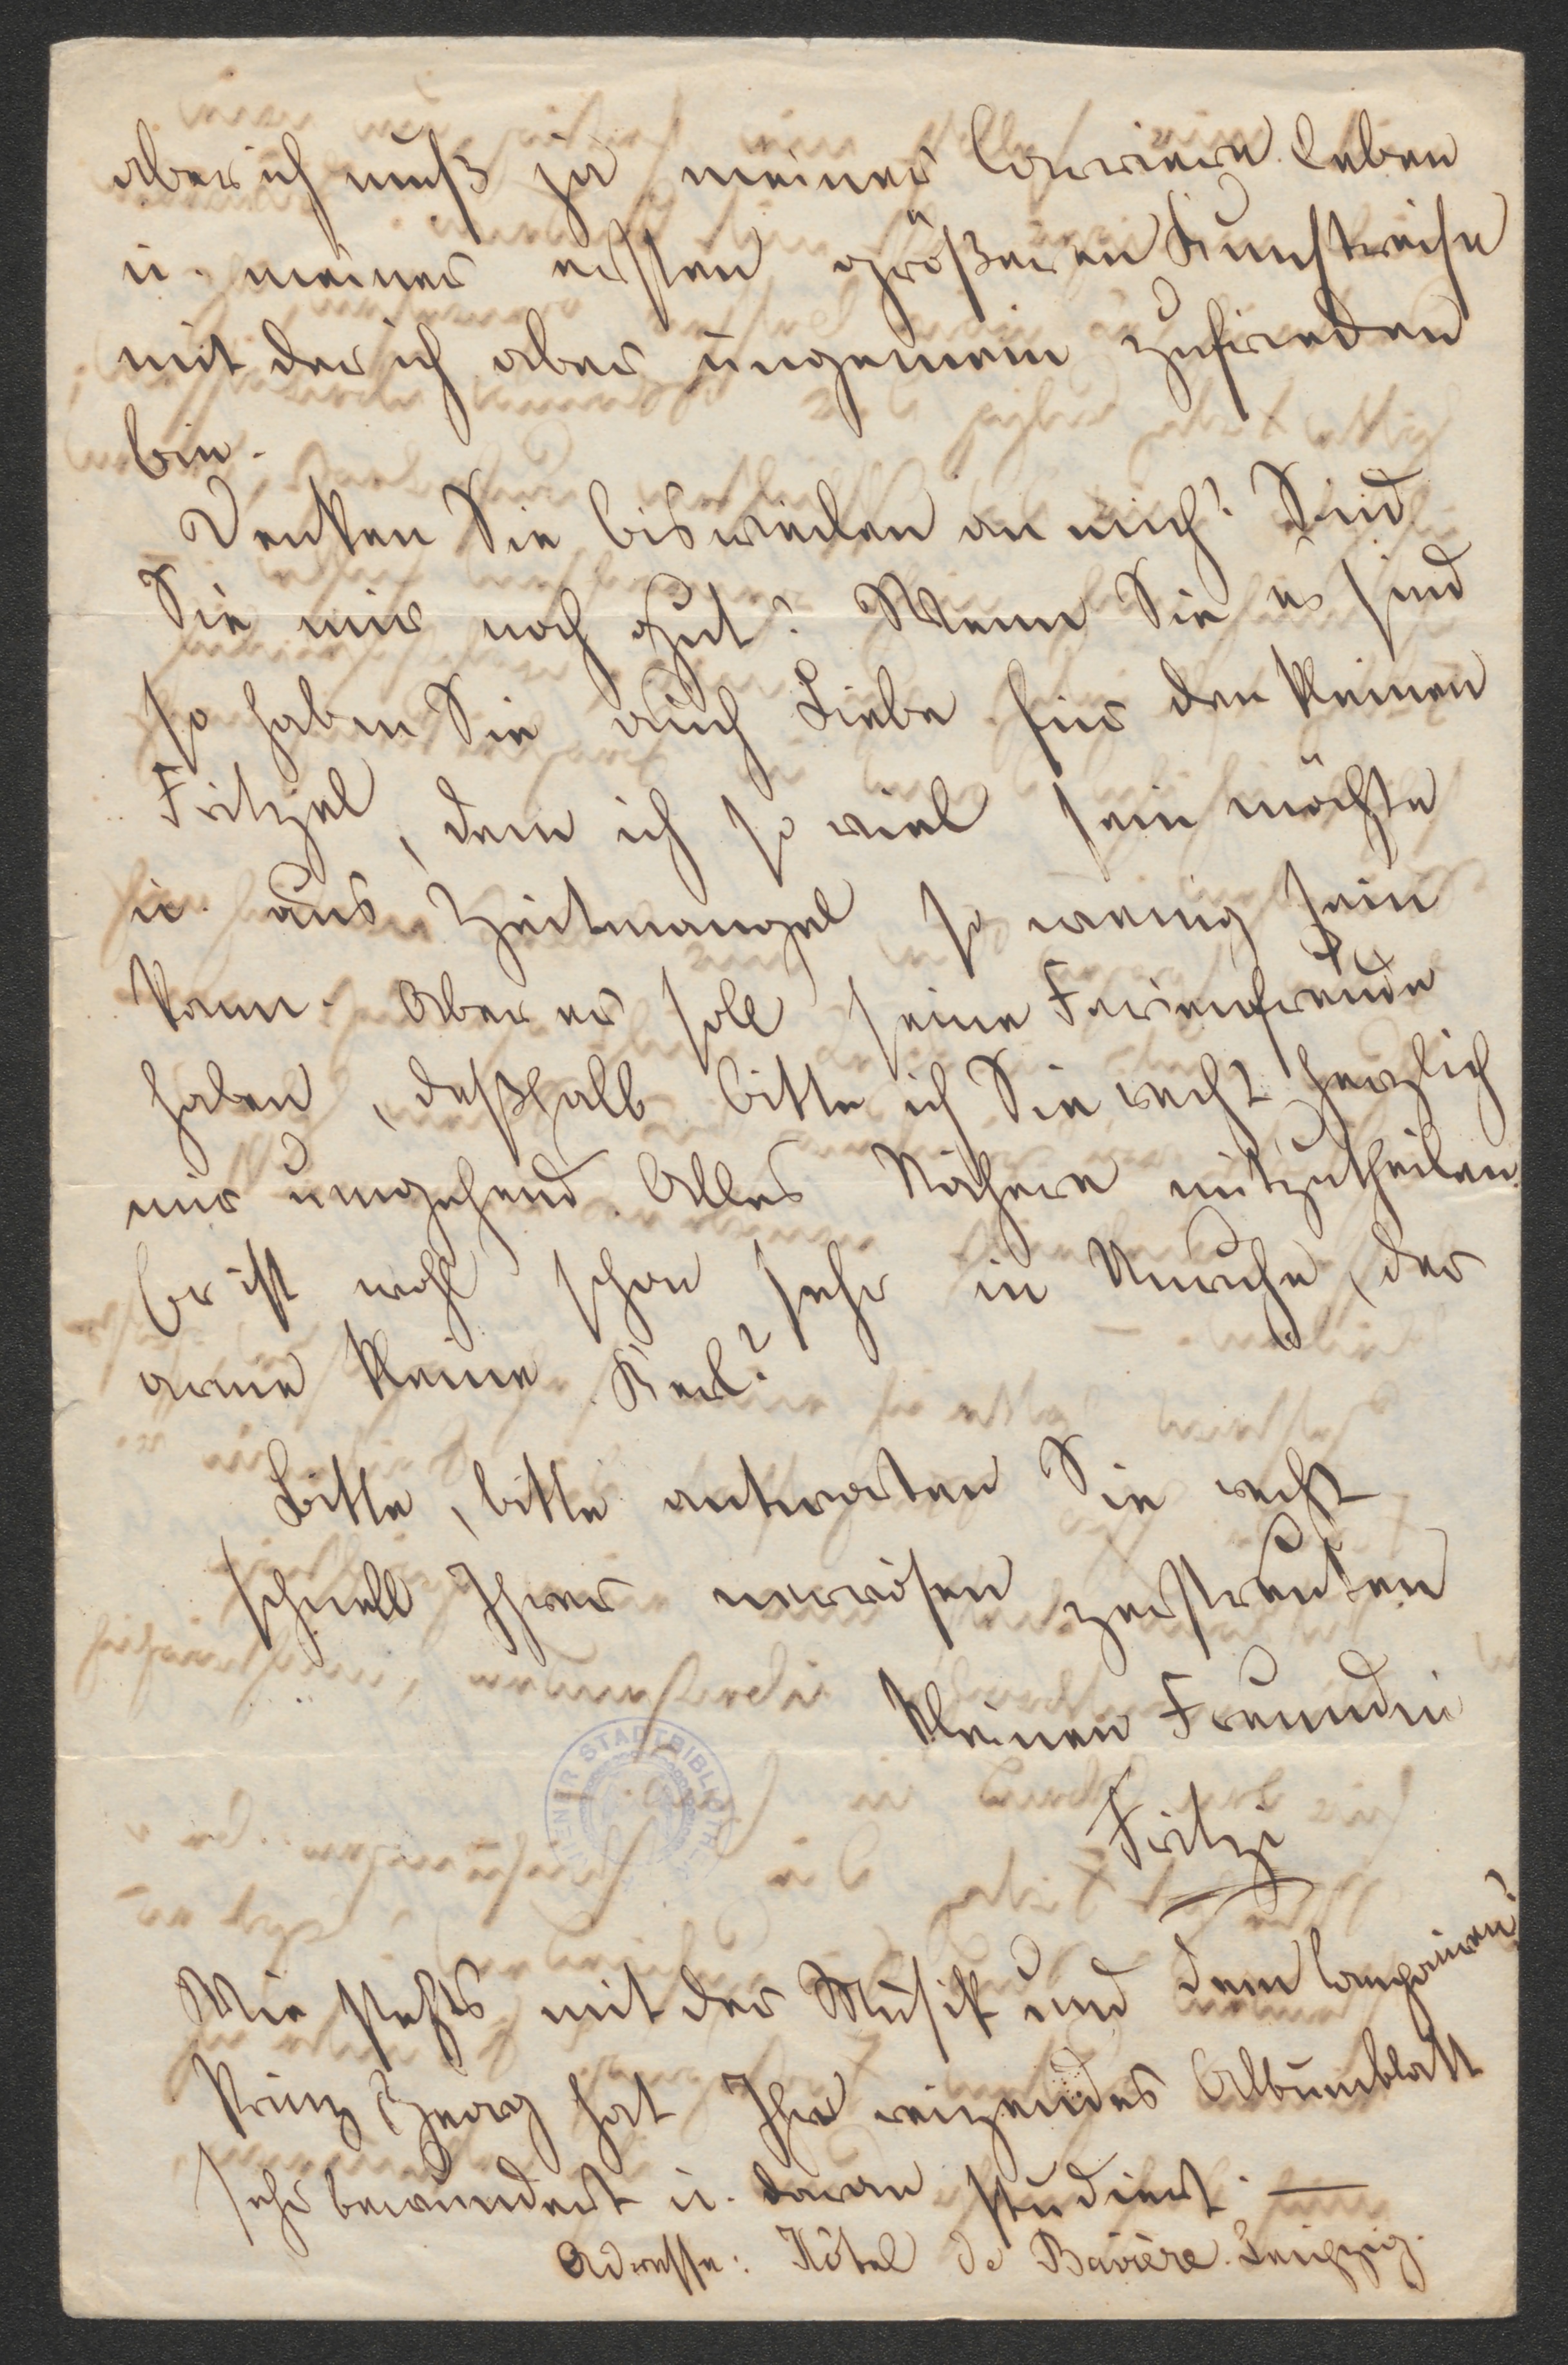 aber ich muß ja meiner Carriere leben
u. meiner ersten größeren Kunstreise
mit der ich aber ungemein zufrieden
bin.
Denken Sie bisweilen an mich? Sind
Sie mir noch gut? Wenn Sie es sind
so haben Sie auch Liebe für den kleinen
Fritzel, dem ich so viel sein möchte
u. aus Zeitmangel so wenig sein
kann. Aber er soll seine Ferienfreude
haben, deßhalb bitte ich Sie recht herzlich
mir umgehend Alles Nähere mitzutheilen.
Er ist wohl schon sehr in Unruhe, der
arme kleine Kerl?
Bitte, bitte antworten Sie recht
schnell Ihrer nervösen zerstreuten
kleinen Freundin
Fritzi
Wie stehts mit der Musik und dem
Prinz Georg hat Ihr reizendes Albumblatt
sehr bewundert u. daran studiert. —
Adresse: Hôtel de Bavière. Leipzig.
STADTBIBLIOTHEK